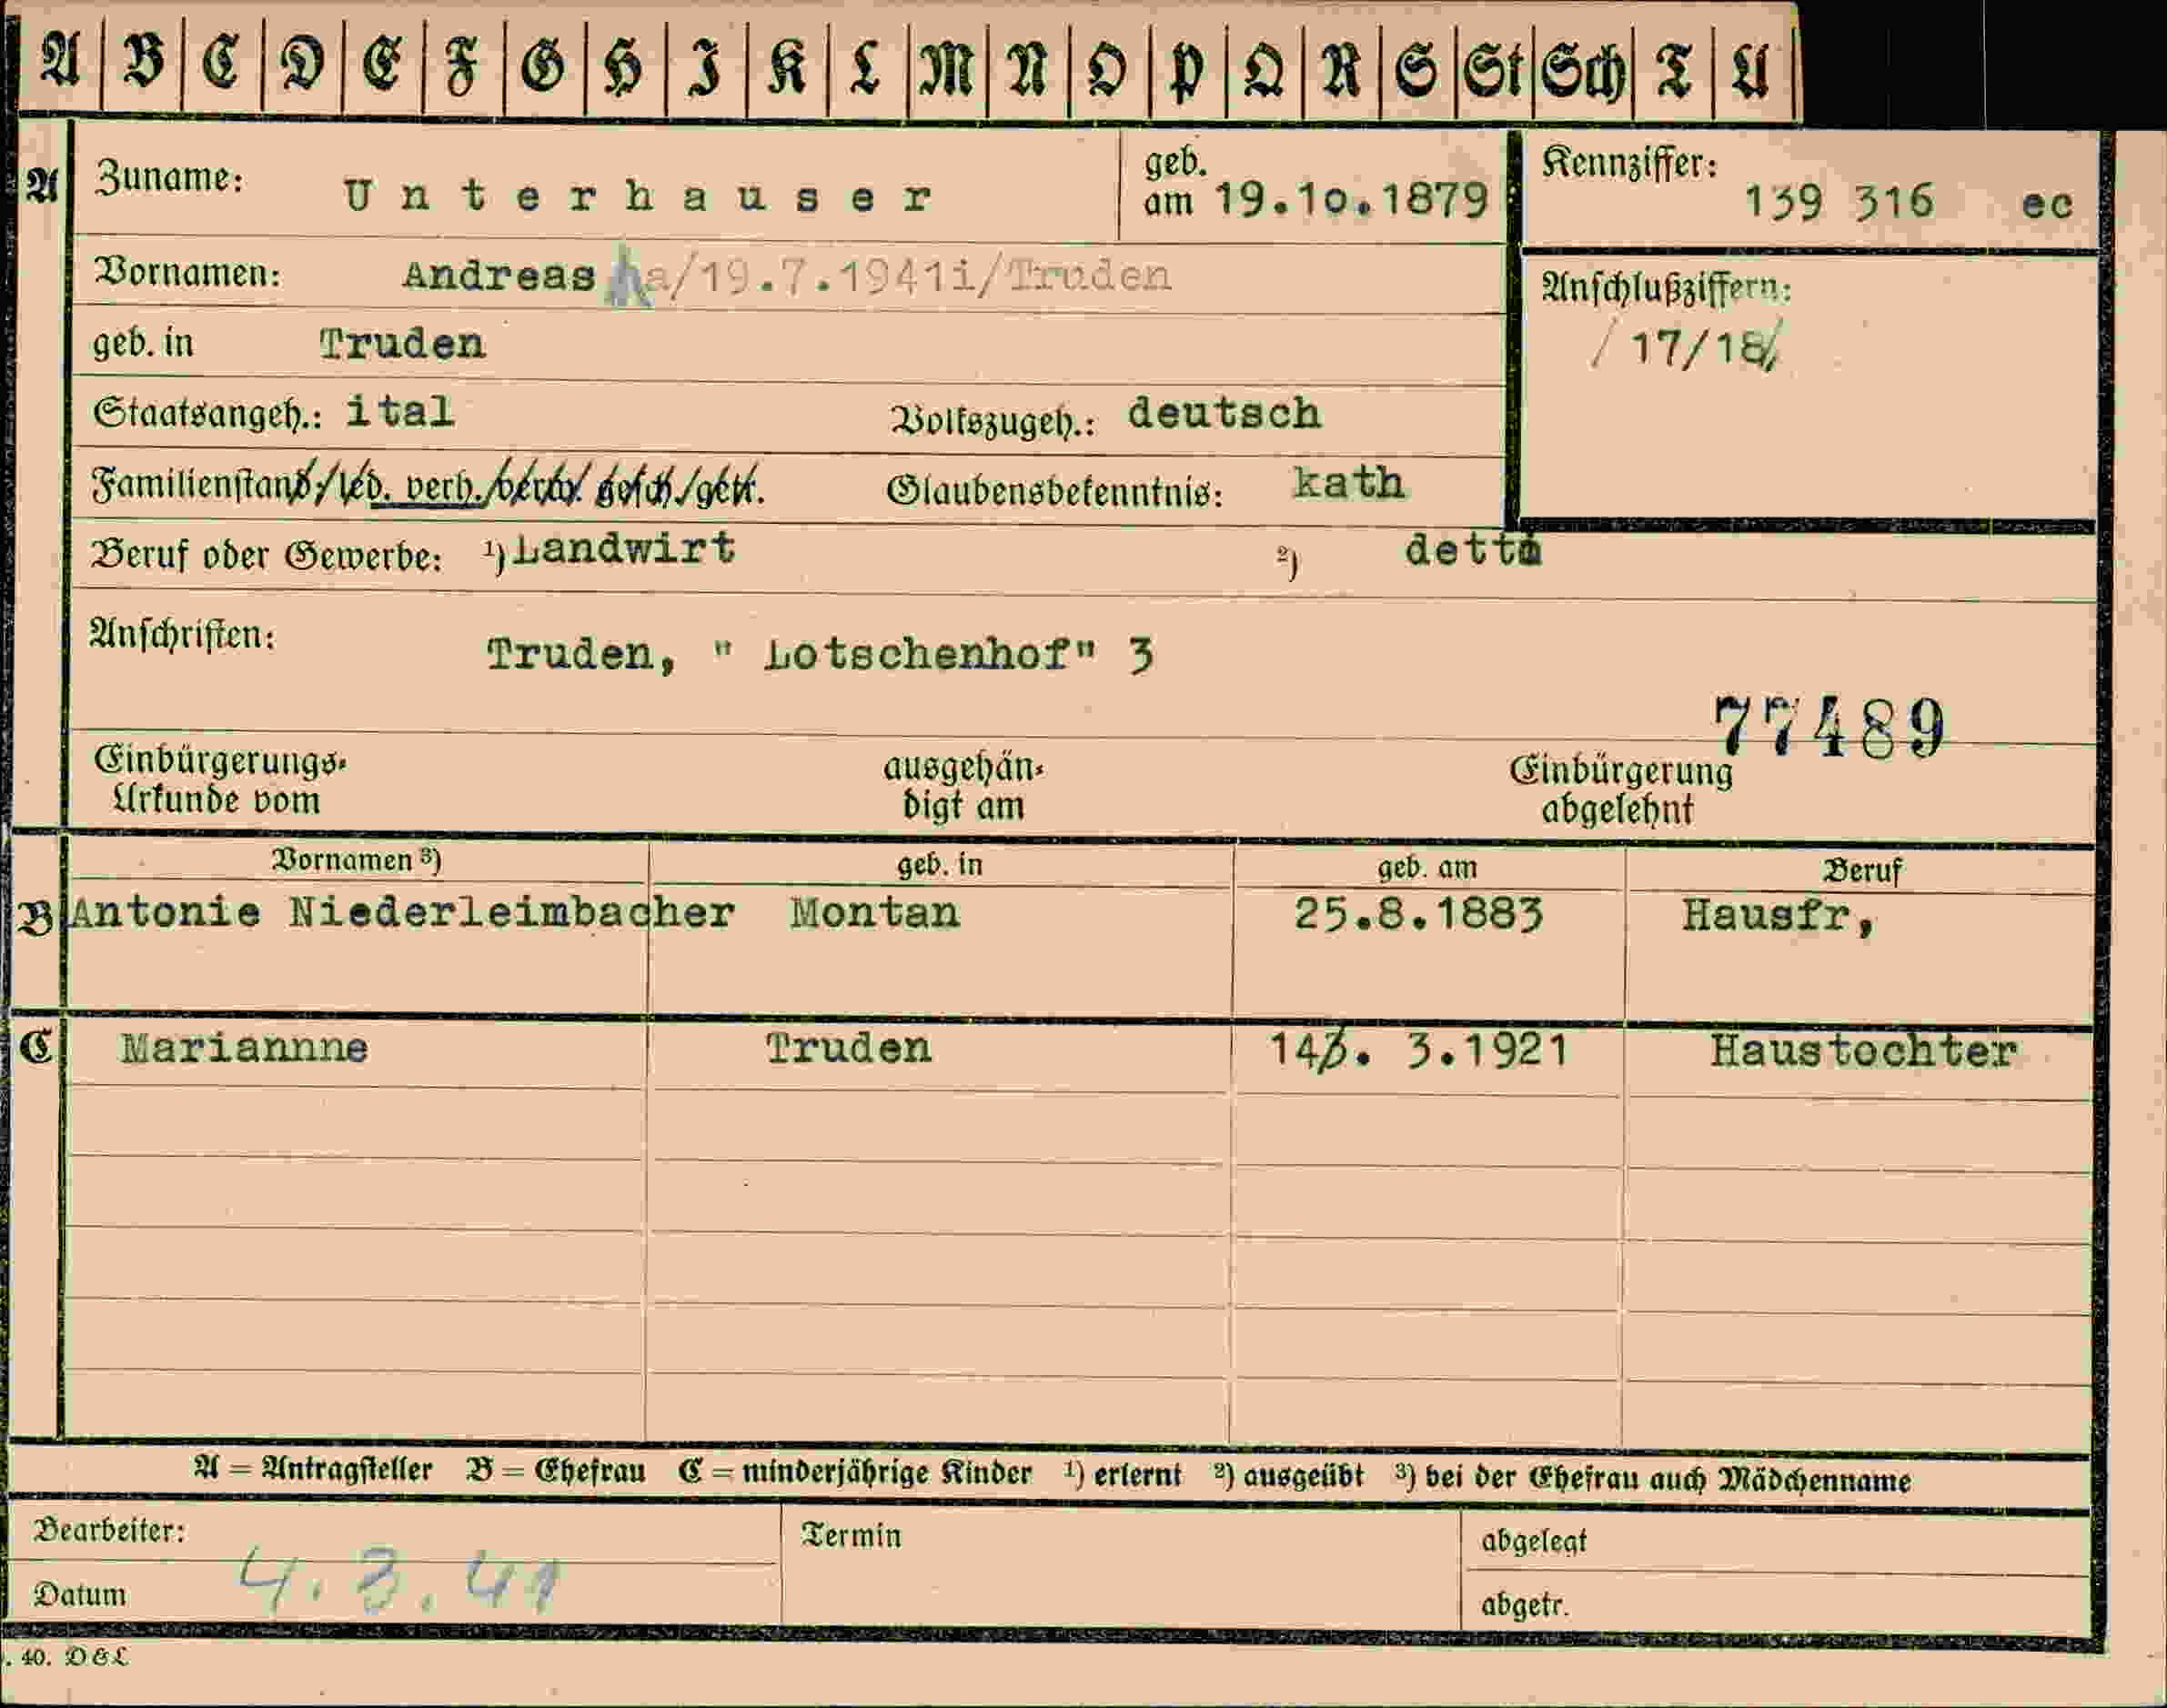 A B C D E F G H I K L M N O P Q R S St Sch T U
A Zuname: Unterhauser geb. am 19.10.1879 Kennziffer: 139 316 ec
Vornamen: Andreas /19.7.1941i/Truden Anschlußziffern:
geb. in Truden / 17/18/
Staatsangeh.: ital Volkszugeh.: deutsch
Familienstand: led. verh. verw. gesch. getr. Glaubensbekenntnis: kath
Beruf oder Gewerbe: ¹) Landwirt ²) detto
Anschriften: Truden, " Lotschenhof" 3
77489
Einbürgerungs- ausgehän- Einbürgerung
Urkunde vom digt am abgelehnt
Vornamen ³) geb. in geb. am Beruf
B Antonie Niederleimbacher Montan 25.8.1883 Hausfr,
C Mariannne Truden 14. 3.1921 Haustochter
A = Antragsteller B = Ehefrau C = minderjährige Kinder ¹) erlernt ²) ausgeübt ³) bei der Ehefrau auch Mädchenname
Bearbeiter: Termin abgelegt
Datum 4.3.41 abgetr.
. 40. D & L